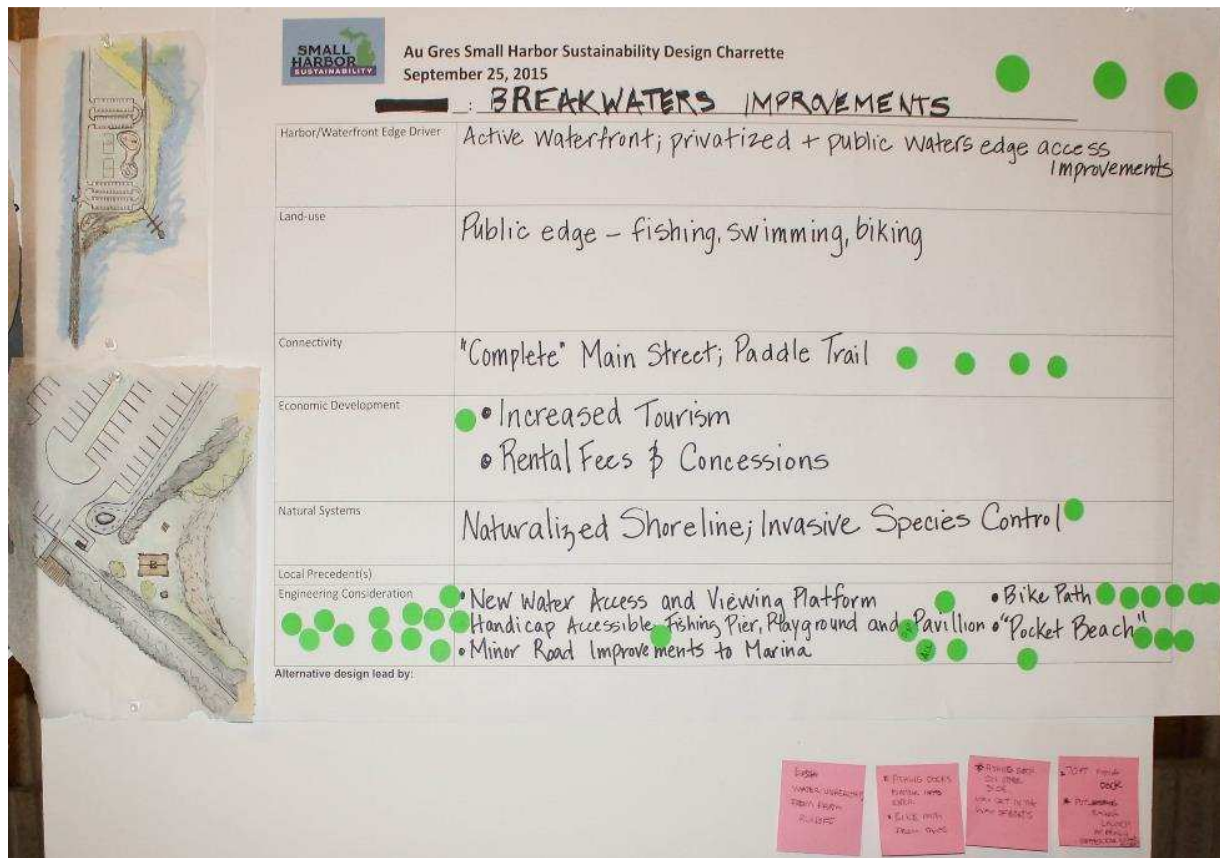 SMALL
HARBOR
SUSTAINABILITY
Au Gres Small Harbor Sustainability Design Charrette
September 25, 2015
: BREAKWATERS IMPROVEMENTS
Harbor/Waterfront Edge Driver
Active Waterfront; privatized + public waters edge access
Improvements
Land-use
Public edge – fishing, swimming, biking
Connectivity
"Complete" Main Street; Paddle Trail
Economic Development
• Increased Tourism
• Rental Fees & Concessions
Natural Systems
Naturalized Shoreline; Invasive Species Control
Local Precedent(s)
Engineering Consideration
• New Water Access and Viewing Platform
• Bike Path
Handicap Accessible Fishing Pier, Playground and Pavillion
• "Pocket Beach"
• Minor Road Improvements to Marina
Alternative design lead by:
WATER
FROM FARM
RUNOFF
FISHING DOCKS
BIKE PATH
FROM
ON OTHER
SIDE
WAY OF BOATS
DOCK